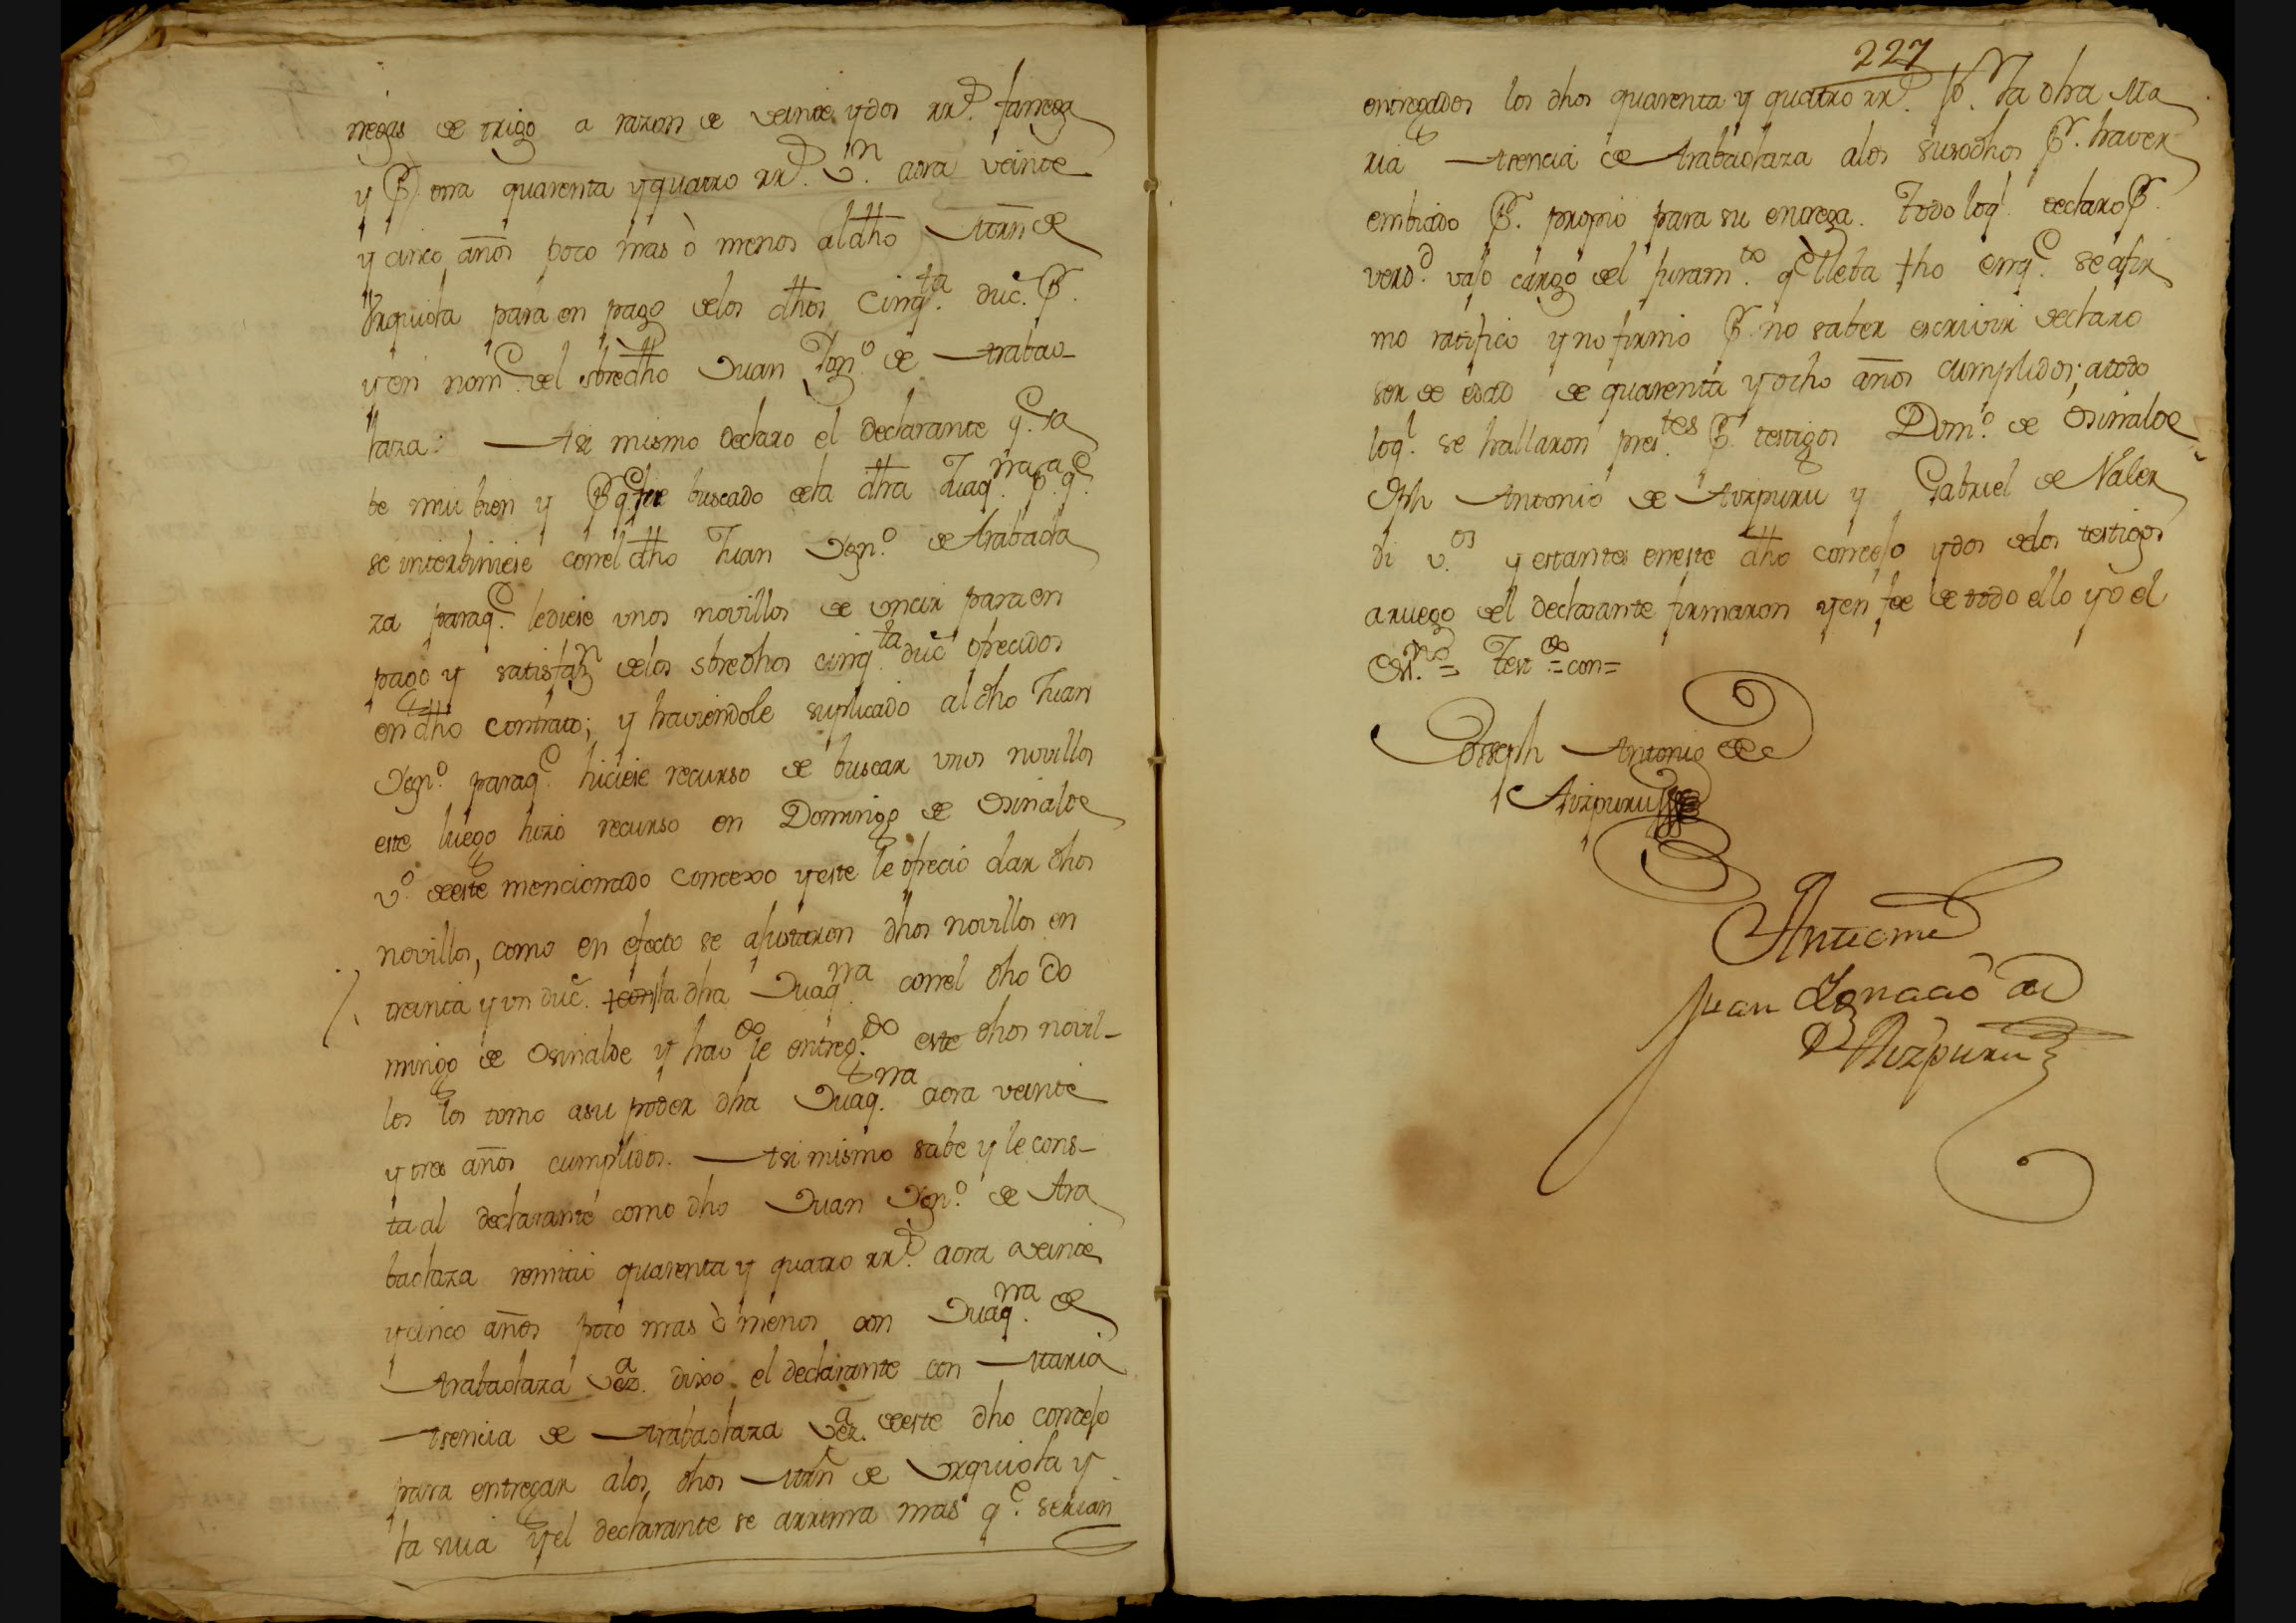 negas de trigo a razon de veinte y dos rr.^s fanega
y P.^r essa quarenta y quatro rr.^s V.^n aora veinte
y cinco años poco mas ò menos al dho Mrñ de
Vrquiola para en pago delos dhos Cinq.^ta duc.^s P.^r
y en nom^e del sbredho Juan Ign.^o de Arabao-
laza: Asi mismo declaro el declarante q.^e sa
be mui bien y P.^r q.^e fue buscado dela dha Juaq.^na p.^a q.^e
se interbiniese con el dho Juan Ygn.^o de Arabaola
za paraq.^e lediese unos novillos de uncir para en
pago y satisfaz.^n delos sbredhos cinq.^ta duc.^s ofrecidos
en dho Contrato; y haviendole suplicado al dho Juan
Ygn.^o paraq.^e hiciese recurso de buscar unos novillos
este luego hizo recurso en Domingo de Osinalde
v.^o deeste mencionado Concexo y este le ofrecio dar dhos
novillos, como en efecto se ajustaron dhos novillos en
treinta y un duc.^s la dha Juaq.^na con el dho Do
mingo de Osinalde y hav.^do le entreg.^do este dhos novil-
los los tomo asu poder dha Juaq.^na aora veinte
y tres años cumplidos. Asi mismo sabe y le cons-
ta al declarante como dho Juan Ygn.^o de Ara
baolaza remitio quarenta y quatro rr.^s aora veinte
y cinco años poco mas ò menos con Juaq.^na de
Arabaolaza digo el declarante con Maria
Asencia de Arabaolaza deeste dho concejo
para entregar alos dhos Mrñ de Vrquiola y
la suia y el declarante se arrima mas q.^e serian
227
entregados los dhos quarenta y quatro rr.^s P.^r la dha Ma
ria Asencia de Arabaolaza alos susodhos P.^r haver
embiado P.^r propio para su entrega. Todo loq.^l declaro P.^r
verd.^d vajo cargo del juram.^to q.^e lleba fho en q.^e se afir
mo ratifico y no firmo P.^r no saber escrivir declaro
ser de edad de quarenta y ocho años cumplidos; atodo
loq.^l se hallaron pres.^tes P.^r testigos Dom.^o de Osinalde
Jph Antonio de Aizpuru y Gabriel de Naber
di v.^os y estantes en este dho concejo y dos delos testigos
aruego del declarante firmaron y en fee de todo ello yo el
Ess.^no = Test.^do = con =
Joseph Antonio de
Aizpuru
Antemi
Juan Ygnacio de
Aizpuru